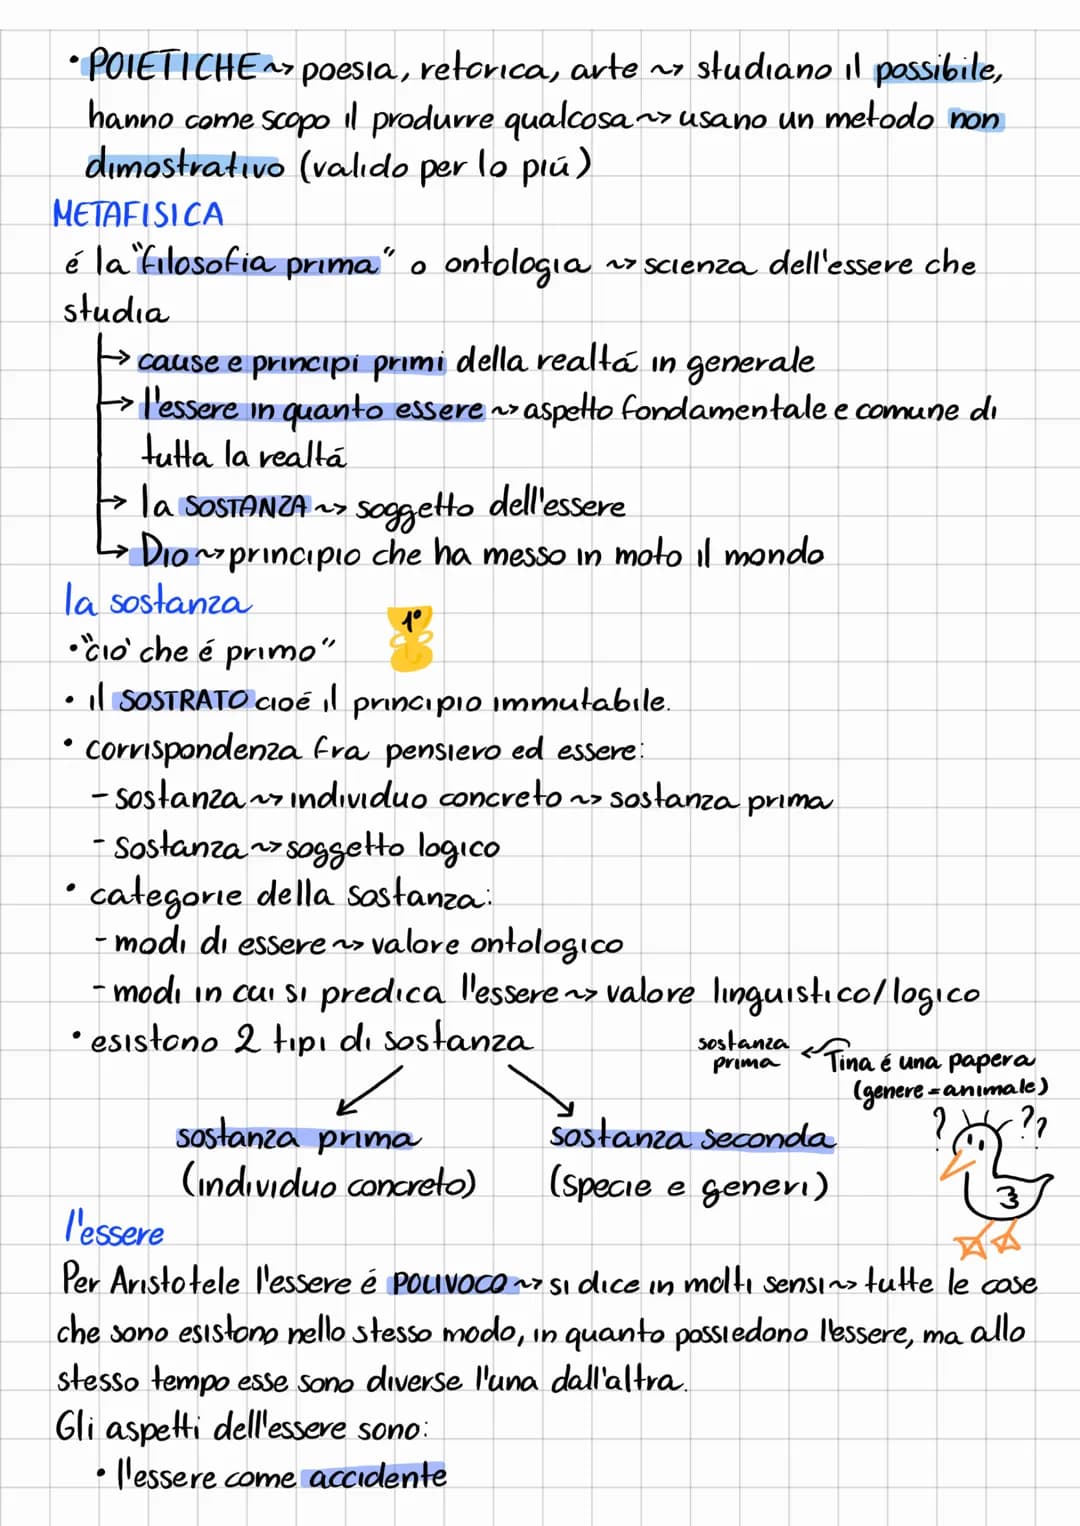 • POIETICHE ~> poesia, retorica, arte ~> studiano il possibile,
hanno come scopo il produrre qualcosa ~> usano un metodo non
dimostrativo (valido per lo piú)
METAFISICA
é la "filosofia prima" o ontologia ~> scienza dell'essere che
studia
→ cause e principi primi della realtá in generale
→ l'essere in quanto essere ~> aspetto fondamentale e comune di
tutta la realtá
→ la SOSTANZA ~> soggetto dell'essere
→ Dio ~> principio che ha messo in moto il mondo
la sostanza
1°
• "ciò che é primo"
• il SOSTRATO cioé il principio immutabile.
• corrispondenza fra pensiero ed essere:
- sostanza ~> individuo concreto ~> sostanza prima
- sostanza ~> soggetto logico
• categorie della sostanza:
- modi di essere ~> valore ontologico
- modi in cui si predica l'essere ~> valore linguistico/logico
• esistono 2 tipi di sostanza
sostanza
prima ← Tina é una papera
(genere = animale)
? ??
sostanza prima sostanza seconda
(individuo concreto) (specie e generi)
3
l'essere
Per Aristotele l'essere é POLIVOCO ~> si dice in molti sensi ~> tutte le cose
che sono esistono nello stesso modo, in quanto possiedono l'essere, ma allo
stesso tempo esse sono diverse l'una dall'altra.
Gli aspetti dell'essere sono:
• l'essere come accidente